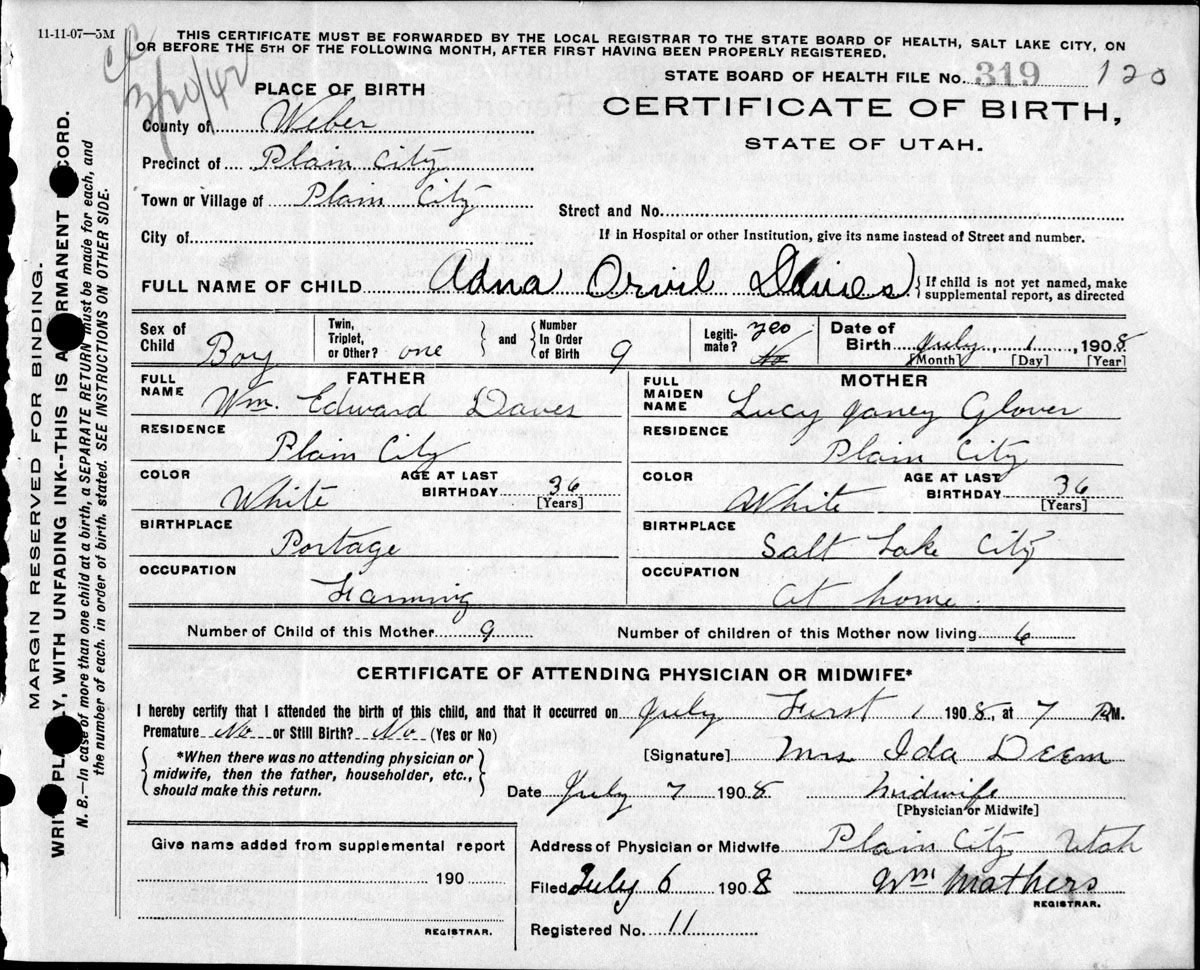 11-11-07—5M
THIS CERTIFICATE MUST BE FORWARDED BY THE LOCAL REGISTRAR TO THE STATE BOARD OF HEALTH, SALT LAKE CITY, ON
OR BEFORE THE 5TH OF THE FOLLOWING MONTH, AFTER FIRST HAVING BEEN PROPERLY REGISTERED.
STATE BOARD OF HEALTH FILE No. 319 120
PLACE OF BIRTH
CERTIFICATE OF BIRTH,
STATE OF UTAH.
County of Weber
Precinct of Plain City
Town or Village of Plain City
Street and No.
City of
If in Hospital or other Institution, give its name instead of Street and number.
FULL NAME OF CHILD Adna Orvil Davies
If child is not yet named, make
supplemental report, as directed
Sex of Child Boy
Twin, Triplet, or Other? one
and
Number In Order of Birth 9
Legitimate? yes No
Date of Birth July 1, 1908
[Month] [Day] [Year]
FATHER
FULL NAME Wm. Edward Daves
RESIDENCE Plain City
COLOR White
AGE AT LAST BIRTHDAY 36
[Years]
BIRTHPLACE Portage
OCCUPATION Farming
MOTHER
FULL MAIDEN NAME Lucy Janey Glover
RESIDENCE Plain City
COLOR White
AGE AT LAST BIRTHDAY 36
[Years]
BIRTHPLACE Salt Lake City
OCCUPATION at home
Number of Child of this Mother 9
Number of children of this Mother now living 6
CERTIFICATE OF ATTENDING PHYSICIAN OR MIDWIFE*
I hereby certify that I attended the birth of this child, and that it occurred on July First 1 1908, at 7 PM.
Premature No or Still Birth? No (Yes or No)
*When there was no attending physician or
midwife, then the father, householder, etc.,
should make this return.
[Signature] Mrs Ida Deem
Date July 7 1908 Midwife
[Physician or Midwife]
Give name added from supplemental report
190
REGISTRAR.
Address of Physician or Midwife Plain City Utah
Filed July 6 1908 Wm Mathers
REGISTRAR.
Registered No. 11
MARGIN RESERVED FOR BINDING.
WRITE PLAINLY, WITH UNFADING INK--THIS IS A PERMANENT RECORD.
N. B.—In case of more than one child at a birth, a SEPARATE RETURN must be made for each, and
the number of each, in order of birth, stated. SEE INSTRUCTIONS ON OTHER SIDE.